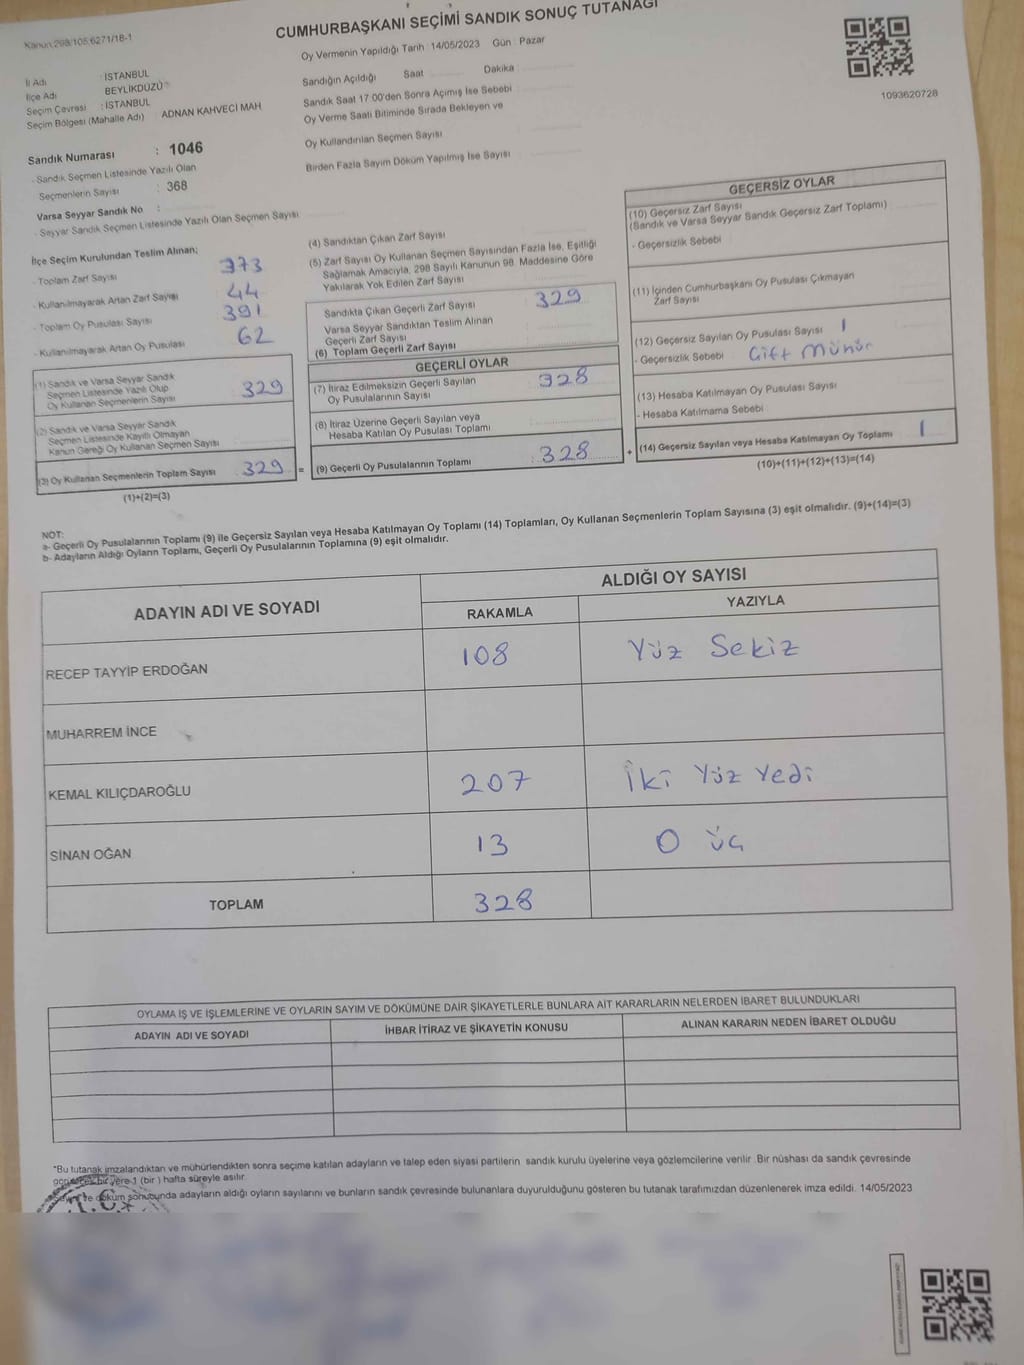 Kanun:298/105;6271/18-1
CUMHURBAŞKANI SEÇİMİ SANDIK SONUÇ TUTANAĞI
Oy Vermenin Yapıldığı Tarih :14/05/2023 Gün : Pazar
İl Adı : İSTANBUL
İlçe Adı BEYLİKDÜZÜ
Seçim Çevresi : İSTANBUL
Seçim Bölgesi (Mahalle Adı) : ADNAN KAHVECİ MAH
Sandığın Açıldığı Saat Dakika
Sandık Saat 17:00'den Sonra Açılmış İse Sebebi
Oy Verme Saati Bitiminde Sırada Bekleyen ve
Oy Kullandırılan Seçmen Sayısı
Birden Fazla Sayım Döküm Yapılmış İse Sayısı
1093620728
Sandık Numarası : 1046
- Sandık Seçmen Listesinde Yazılı Olan
Seçmenlerin Sayısı : 368
Varsa Seyyar Sandık No :
- Seyyar Sandık Seçmen Listesinde Yazılı Olan Seçmen Sayısı
İlçe Seçim Kurulundan Teslim Alınan;
- Toplam Zarf Sayısı 373
- Kullanılmayarak Artan Zarf Sayısı 44
- Toplam Oy Pusulası Sayısı 391
- Kullanılmayarak Artan Oy Pusulası 62
(1) Sandık ve Varsa Seyyar Sandık
Seçmen Listesinde Yazılı Olup
Oy Kullanan Seçmenlerin Sayısı 329
(2) Sandık ve Varsa Seyyar Sandık
Seçmen Listesinde Kayıtlı Olmayan
Kanun Gereği Oy Kullanan Seçmen Sayısı
(3) Oy Kullanan Seçmenlerin Toplam Sayısı 329 =
(1)+(2)=(3)
(4) Sandıktan Çıkan Zarf Sayısı
(5) Zarf Sayısı Oy Kullanan Seçmen Sayısından Fazla İse, Eşitliği
Sağlamak Amacıyla, 298 Sayılı Kanunun 98. Maddesine Göre
Yakılarak Yok Edilen Zarf Sayısı
Sandıkta Çıkan Geçerli Zarf Sayısı 329
Varsa Seyyar Sandıktan Teslim Alınan
Geçerli Zarf Sayısı
(6) Toplam Geçerli Zarf Sayısı
GEÇERLİ OYLAR
(7) İtiraz Edilmeksizin Geçerli Sayılan
Oy Pusulalarının Sayısı 328
(8) İtiraz Üzerine Geçerli Sayılan veya
Hesaba Katılan Oy Pusulası Toplamı
(9) Geçerli Oy Pusulalarının Toplamı : 328 +
GEÇERSİZ OYLAR
(10) Geçersiz Zarf Sayısı
(Sandık ve Varsa Seyyar Sandık Geçersiz Zarf Toplamı)
- Geçersizlik Sebebi
(11) İçinden Cumhurbaşkanı Oy Pusulası Çıkmayan
Zarf Sayısı
(12) Geçersiz Sayılan Oy Pusulası Sayısı 1
- Geçersizlik Sebebi Çift Mühür
(13) Hesaba Katılmayan Oy Pusulası Sayısı
- Hesaba Katılmama Sebebi
(14) Geçersiz Sayılan veya Hesaba Katılmayan Oy Toplamı 1
(10)+(11)+(12)+(13)=(14)
NOT:
a- Geçerli Oy Pusulalarının Toplamı (9) ile Geçersiz Sayılan veya Hesaba Katılmayan Oy Toplamı (14) Toplamları, Oy Kullanan Seçmenlerin Toplam Sayısına (3) eşit olmalıdır. (9)+(14)=(3)
b- Adayların Aldığı Oyların Toplamı, Geçerli Oy Pusulalarının Toplamına (9) eşit olmalıdır.
ADAYIN ADI VE SOYADI
ALDIĞI OY SAYISI
RAKAMLA YAZIYLA
RECEP TAYYİP ERDOĞAN 108 Yüz Sekiz
MUHARREM İNCE
KEMAL KILIÇDAROĞLU 207 İki Yüz Yedi
SİNAN OĞAN 13 O üç
TOPLAM 328
OYLAMA İŞ VE İŞLEMLERİNE VE OYLARIN SAYIM VE DÖKÜMÜNE DAİR ŞİKAYETLERLE BUNLARA AİT KARARLARIN NELERDEN İBARET BULUNDUKLARI
ADAYIN ADI VE SOYADI İHBAR İTİRAZ VE ŞİKAYETİN KONUSU ALINAN KARARIN NEDEN İBARET OLDUĞU
*Bu tutanak imzalandıktan ve mühürlendikten sonra seçime katılan adayların ve talep eden siyasi partilerin sandık kurulu üyelerine veya gözlemcilerine verilir. Bir nüshası da sandık çevresinde
bir yere 1 (bir ) hafta süreyle asılır.
ve döküm sonucunda adayların aldığı oyların sayılarını ve bunların sandık çevresinde bulunanlara duyurulduğunu gösteren bu tutanak tarafımızdan düzenlenerek imza edildi. 14/05/2023
T.C.